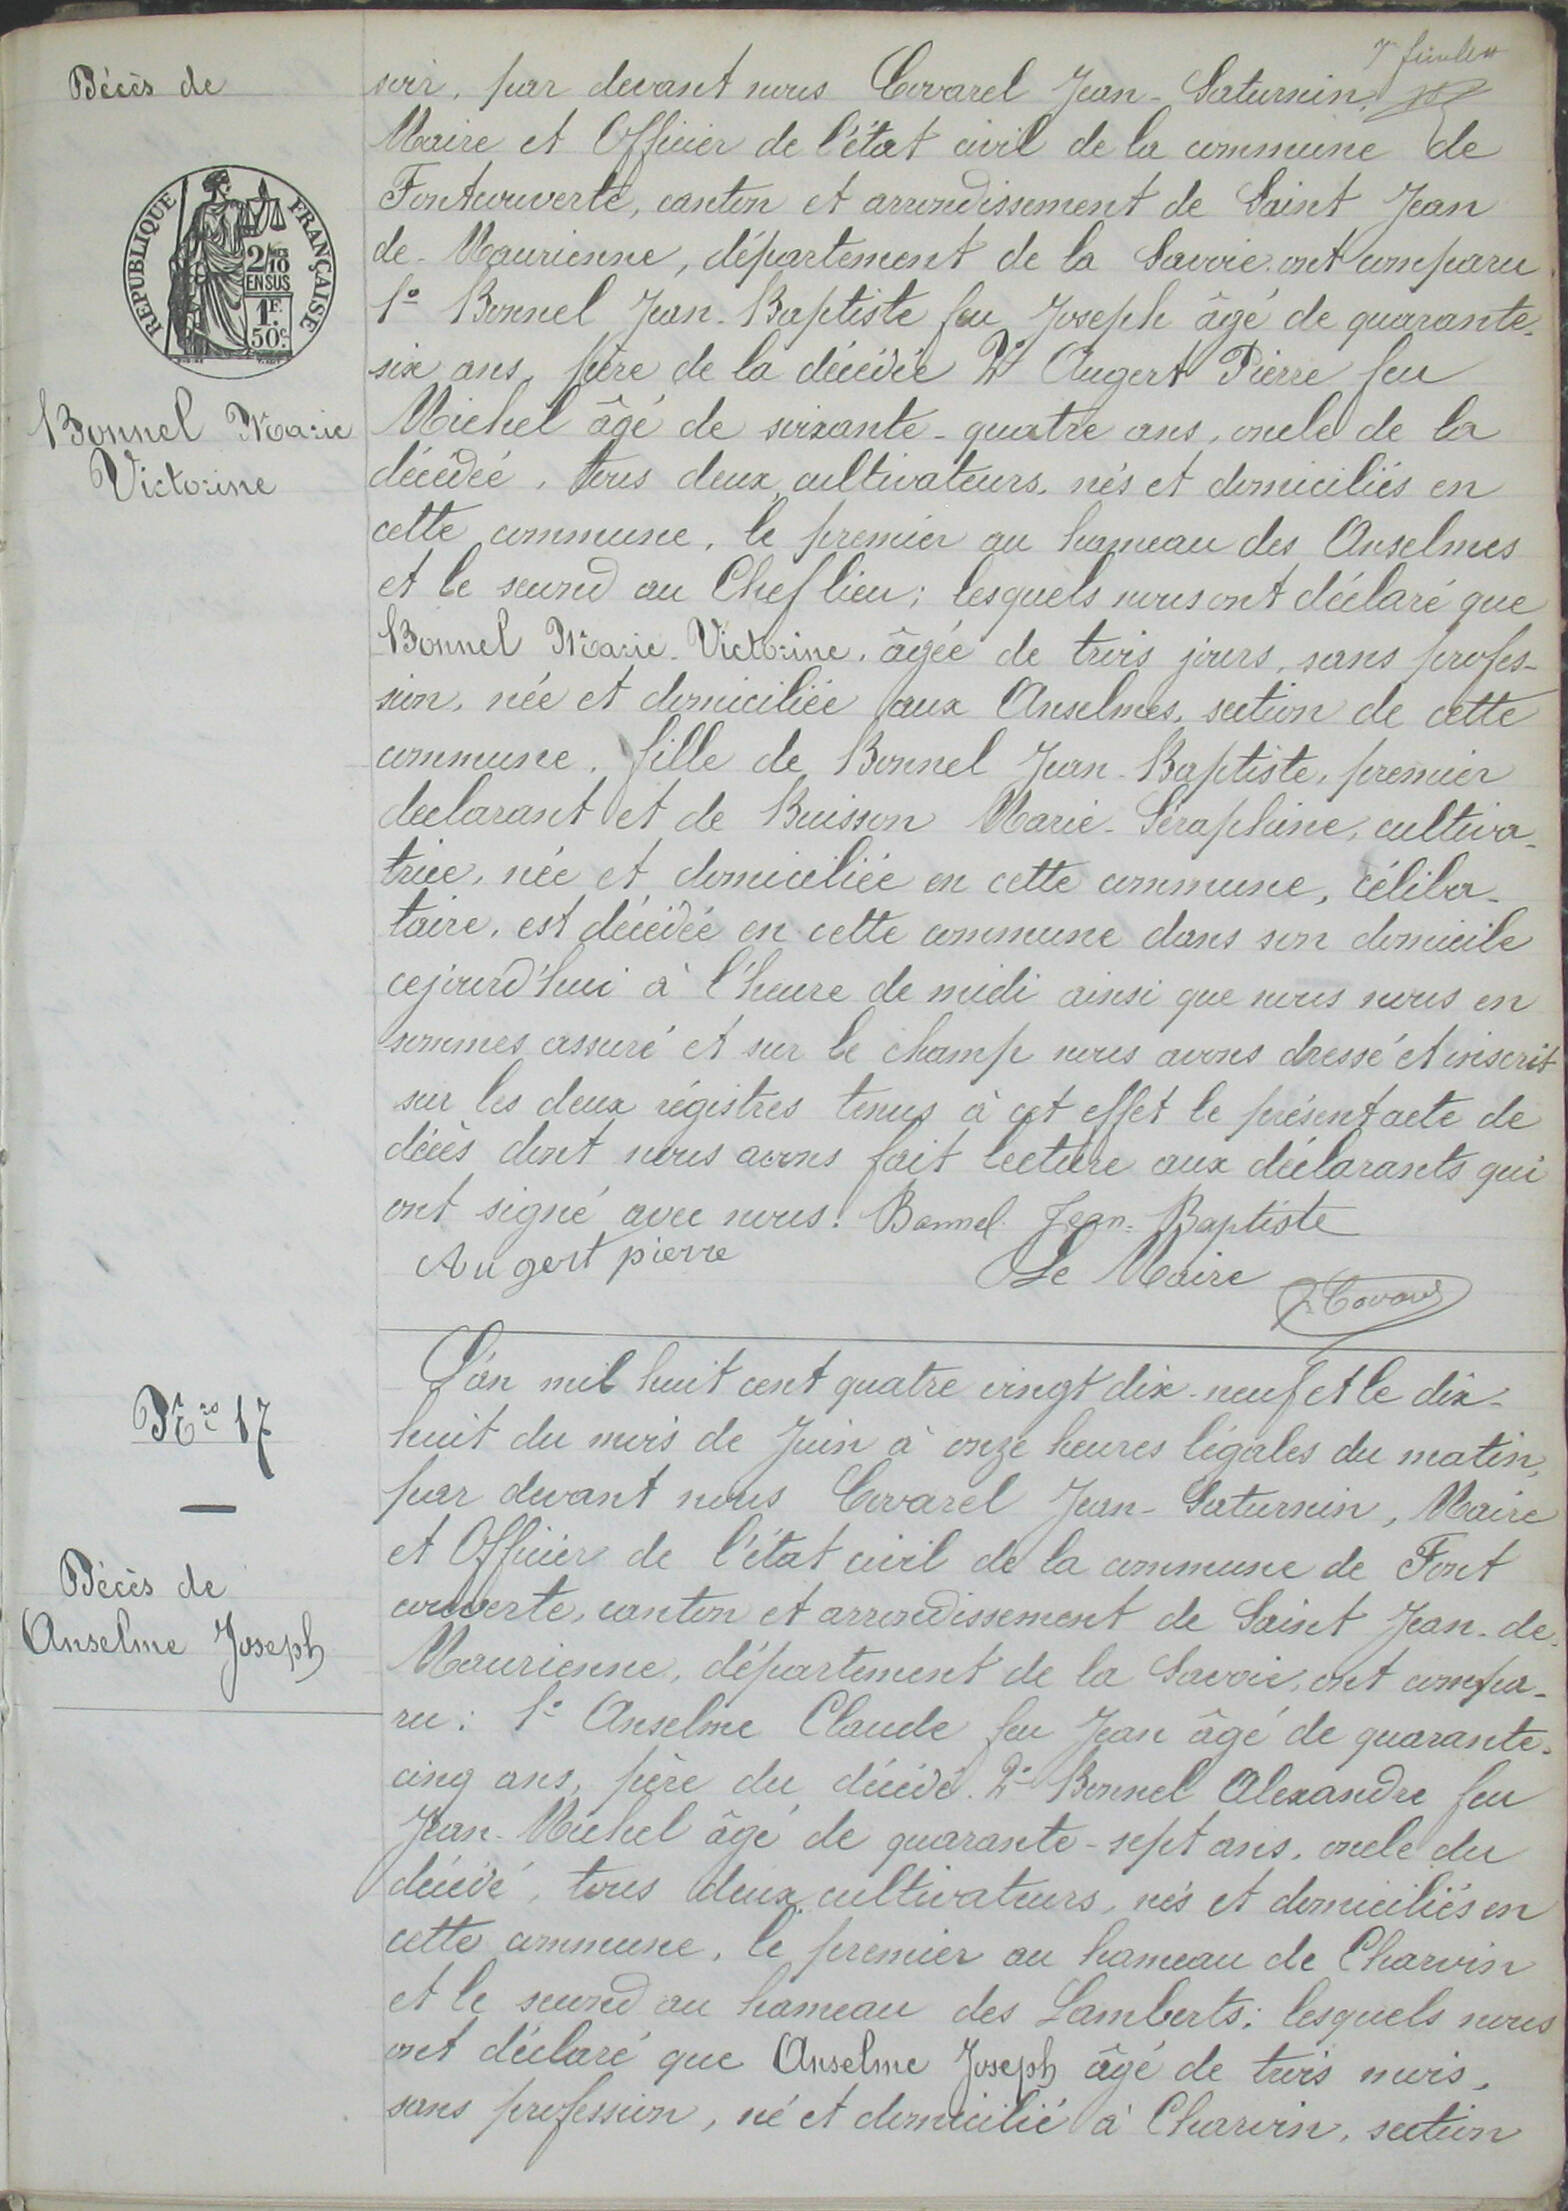 7e feuillet
Décès de
RÉPUBLIQUE FRANÇAISE
2/10
EN SUS
1F.
50c.
Bonnel Marie
Victorine
soir, par devant nous Covarel Jean-Saturnin,
Maire et Officier de l'état civil de la commune de
Fontcouverte, canton et arrondissement de Saint Jean
de-Maurienne, département de la Savoie ont comparu
1º Bonnel Jean-Baptiste feu Joseph âgé de quarante-
six ans, père de la décédée 2º Augert Pierre feu
Michel âgé de soixante-quatre ans, oncle de la
décédée, tous deux cultivateurs, nés et domiciliés en
cette commune, le premier au hameau des Anselmes
et le second au Chef lieu; lesquels nous ont déclaré que
Bonnel Marie-Victorine, âgée de trois jours, sans profes-
sion, née et domiciliée aux Anselmes, section de cette
commune, fille de Bonnel Jean-Baptiste, premier
declarant et de Buisson Marie-Séraphine, cultiva-
trice, née et domiciliée en cette commune, céliba-
taire, est décédée en cette commune dans son domicile
cejourd'hui à l'heure de midi ainsi que nous nous en
sommes assuré et sur le champ nous avons dressé et inscrit
sur les deux régistres tenus à cet effet le présent acte de
décès dont nous avons fait lecture aux déclarants qui
ont signé avec nous. Bonnel Jean-Baptiste
Augert pierre
Le Maire
J. Covarel
Nro 17
Décès de
Anselme Joseph
L'an mil huit cent quatre vingt dix-neuf et le dix-
huit du mois de Juin à onze heures légales du matin,
par devant nous Covarel Jean-Saturnin, Maire
et Officier de l'état civil de la commune de Font
couverte, canton et arrondissement de Saint Jean-de-
Maurienne, département de la Savoie, ont compa-
ru: 1º Anselme Claude feu Jean âgé de quarante-
cinq ans, père du décédé. 2º Bonnel Alexandre feu
Jean-Michel âgé de quarante-sept ans, oncle du
décédé, tous deux cultivateurs, nés et domiciliés en
cette commune, le premier au hameau de Charvin
et le second au hameau des Lamberts; lesquels nous
ont déclaré que Anselme Joseph âgé de trois mois,
sans profession, né et domicilié à Charvin, section